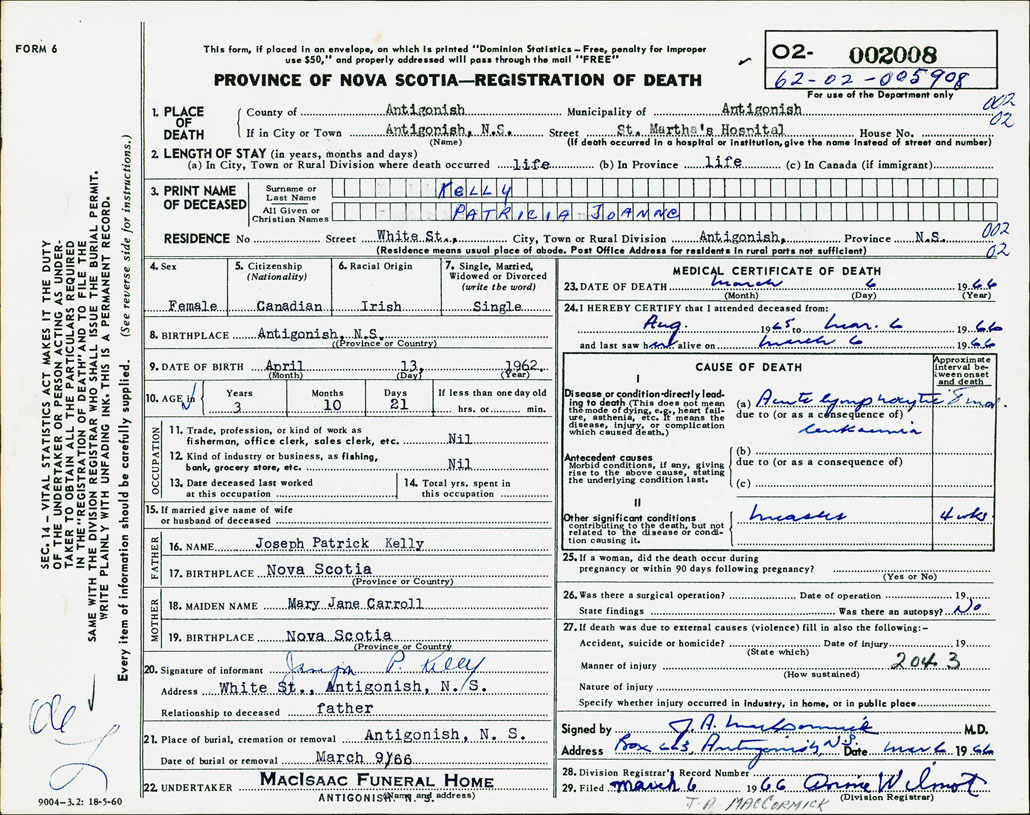 FORM 6
This form, if placed in an envelope, on which is printed "Dominion Statistics – Free, penalty for improper
use $50," and properly addressed will pass through the mail "FREE"
PROVINCE OF NOVA SCOTIA—REGISTRATION OF DEATH
02- 002008
62-02-005908
For use of the Department only
002
02
1. PLACE OF DEATH
County of Antigonish Municipality of Antigonish
If in City or Town Antigonish, N.S. Street St. Martha's Hospital House No.
(Name) (If death occurred in a hospital or institution, give the name instead of street and number)
2. LENGTH OF STAY (in years, months and days)
(a) In City, Town or Rural Division where death occurred life (b) In Province life (c) In Canada (if immigrant)
3. PRINT NAME OF DECEASED
Surname or Last Name KELLY
All Given or Christian Names PATRICIA JOANNE
RESIDENCE No Street White St., City, Town or Rural Division Antigonish, Province N.S.
002
02
(Residence means usual place of abode. Post Office Address for residents in rural parts not sufficient)
4. Sex
Female
5. Citizenship
(Nationality)
Canadian
6. Racial Origin
Irish
7. Single, Married,
Widowed or Divorced
(write the word)
Single
8. BIRTHPLACE Antigonish, N.S.
(Province or Country)
9. DATE OF BIRTH April 13, 1962.
(Month) (Day) (Year)
10. AGE in
Years Months Days If less than one day old
3 10 21 hrs. or min.
OCCUPATION
11. Trade, profession, or kind of work as
fisherman, office clerk, sales clerk, etc. Nil
12. Kind of industry or business, as fishing,
bank, grocery store, etc. Nil
13. Date deceased last worked
at this occupation
14. Total yrs. spent in
this occupation
15. If married give name of wife
or husband of deceased
FATHER
16. NAME Joseph Patrick Kelly
17. BIRTHPLACE Nova Scotia
(Province or Country)
MOTHER
18. MAIDEN NAME Mary Jane Carroll
19. BIRTHPLACE Nova Scotia
(Province or Country)
20. Signature of informant P. Kelly
Address White St., Antigonish, N. S.
Relationship to deceased father
21. Place of burial, cremation or removal Antigonish, N. S.
Date of burial or removal March 9/66
22. UNDERTAKER MACISAAC FUNERAL HOME
ANTIGONISH, N. S.
(Name and address)
MEDICAL CERTIFICATE OF DEATH
23. DATE OF DEATH March 6 1966
(Month) (Day) (Year)
24. I HEREBY CERTIFY that I attended deceased from:
Aug. 1965 to Mar. 6 1966
and last saw her alive on March 6 1966
CAUSE OF DEATH
Approximate
interval be-
tween onset
and death
I
Disease or condition directly lead-
ing to death (This does not mean
the mode of dying, e.g., heart fail-
ure, asthenia, etc. It means the
disease, injury, or complication
which caused death.)
(a) Acute lymphocytic 8 mo.
due to (or as a consequence of)
leukaemia
Antecedent causes
Morbid conditions, if any, giving
rise to the above cause, stating
the underlying condition last.
(b)
due to (or as a consequence of)
(c)
II
Other significant conditions
contributing to the death, but not
related to the disease or condi-
tion causing it.
Measles 4 wks.
25. If a woman, did the death occur during
pregnancy or within 90 days following pregnancy?
(Yes or No)
26. Was there a surgical operation? Date of operation 19
State findings Was there an autopsy? No
27. If death was due to external causes (violence) fill in also the following:–
Accident, suicide or homicide? Date of injury 19
(State which)
Manner of injury 2043
(How sustained)
Nature of injury
Specify whether injury occurred in industry, in home, or in public place
Signed by J. A. MacCormick M.D.
Address Box 663, Antigonish, N.S. Date Mar 6 1966
28. Division Registrar's Record Number
29. Filed March 6 1966 Wilmot
(Division Registrar)
J. A. MACCORMICK
SEC. 14 – VITAL STATISTICS ACT MAKES IT THE DUTY
OF THE UNDERTAKER OR PERSON ACTING AS UNDER-
TAKER TO OBTAIN ALL THE PARTICULARS REQUIRED
IN THE "REGISTRATION OF DEATH" AND TO FILE THE
SAME WITH THE DIVISION REGISTRAR WHO SHALL ISSUE THE BURIAL PERMIT.
WRITE PLAINLY WITH UNFADING INK. THIS IS A PERMANENT RECORD.
Every item of information should be carefully supplied. (See reverse side for instructions.)
9004-3.2: 18-5-60